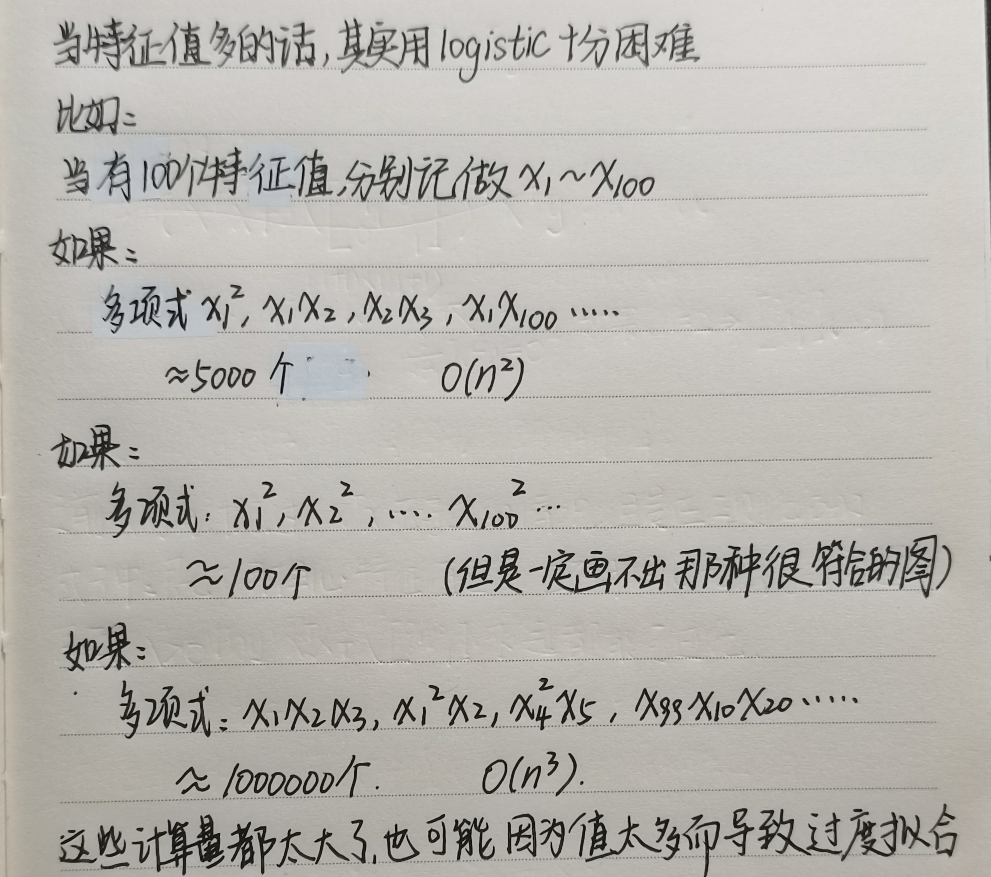 当特征值多的话,其实用logistic十分困难
比如:
当有100个特征值,分别记做 x₁~x₁₀₀
如果:
多项式 x₁², x₁x₂, x₂x₃, x₁x₁₀₀ ……
≈5000个 O(n²)
如果:
多项式: x₁², x₂², …. x₁₀₀² …
≈100个 (但是一定画不出那种很符合的图)
如果:
多项式: x₁x₂x₃, x₁²x₂, x₄²x₅, x₉₉x₁₀x₂₀ ……
≈1000000个. O(n³).
这些计算量都太大了,也可能因为值太多而导致过度拟合